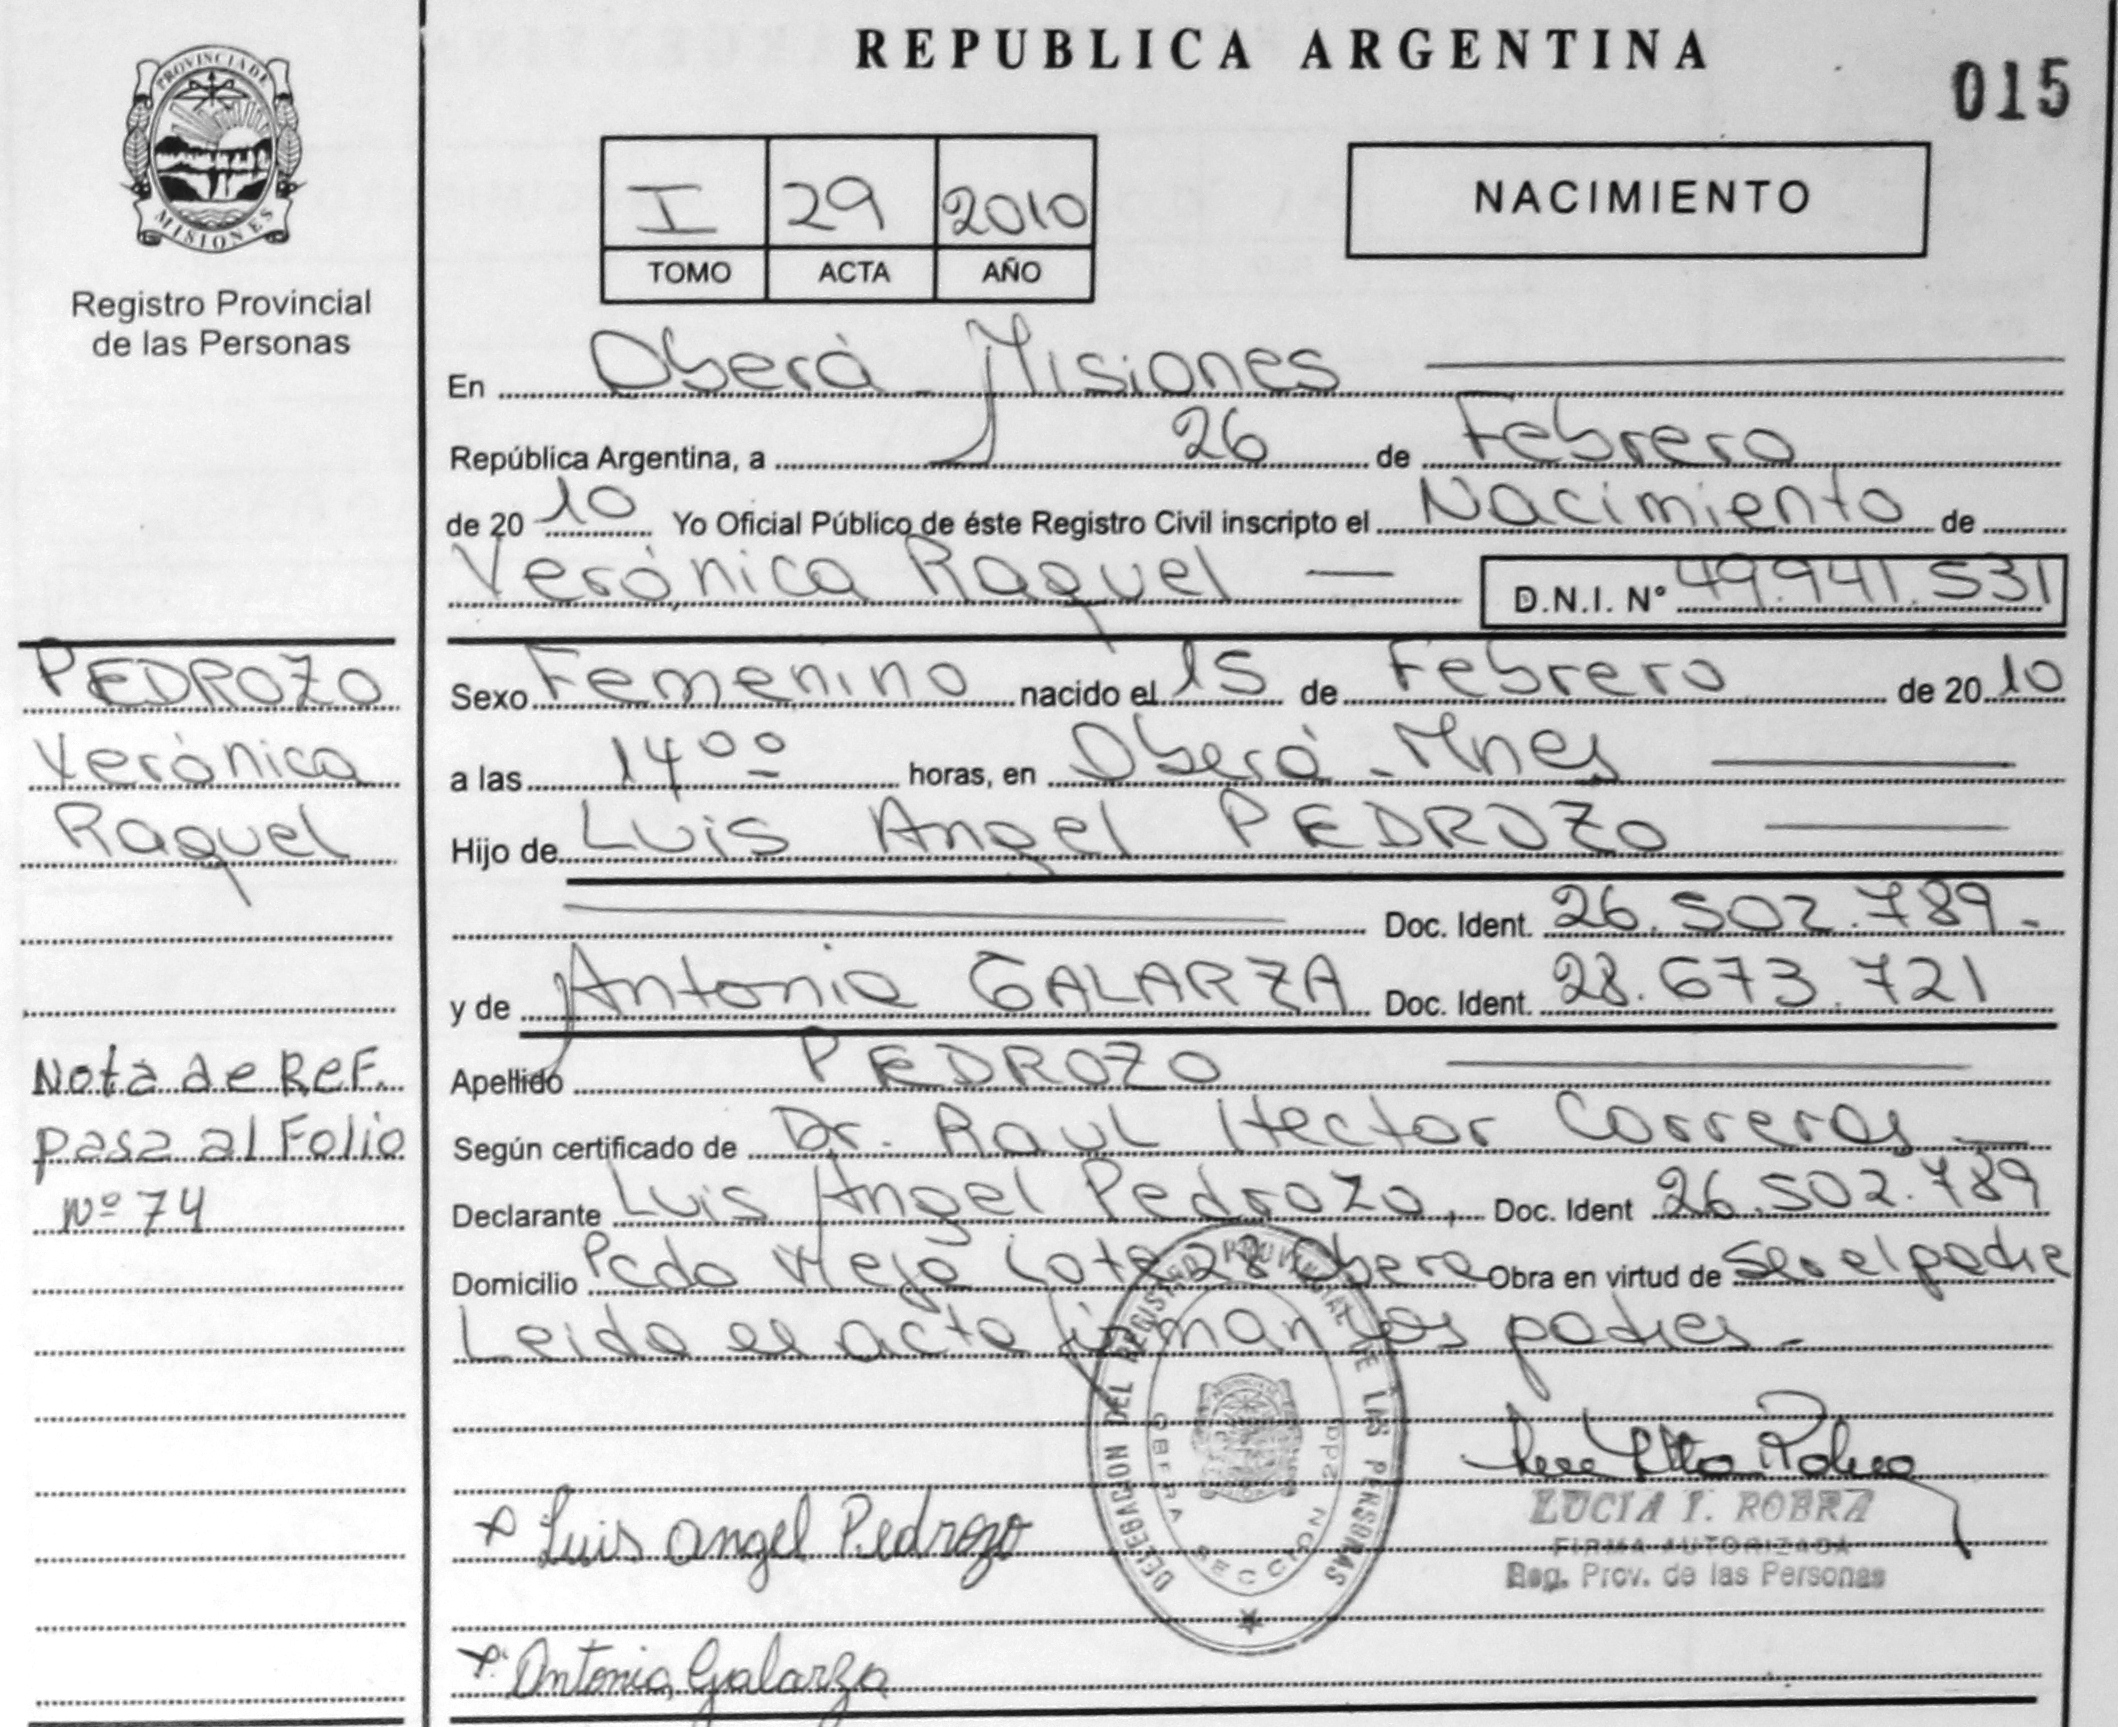 REPUBLICA ARGENTINA
015
PROVINCIA DE
MISIONES
Registro Provincial
de las Personas
I 29 2010
TOMO ACTA AÑO
NACIMIENTO
En Oberá - Misiones
República Argentina, a 26 de Febrero
de 20 10 Yo Oficial Público de éste Registro Civil inscripto el Nacimiento de
Verónica Raquel — D.N.I. Nº 49.941.531
PEDROZO
Verónica
Raquel
Nota de Ref.
pasa al Folio
Nº 74
Sexo Femenino nacido el 15 de Febrero de 20 10
a las 14 00 horas, en Oberá - Mnes
Hijo de Luis Angel PEDROZO
Doc. Ident. 26.502.789-
y de Antonia GALARZA Doc. Ident. 28.673.721
Apellido PEDROZO
Según certificado de Dr. Raul Hector Correras
Declarante Luis Angel Pedrozo, Doc. Ident 26.502.789
Domicilio Pcdo Vieja Lote 28 Obera Obra en virtud de ser el padre
Leida el acta firman los padres-
DELEGACION DEL REGISTRO PROVINCIAL DE LAS PERSONAS
OBERA SECCION 2da
LUCIA I. ROBRA
FIRMA AUTORIZADA
Reg. Prov. de las Personas
x Luis angel Pedrozo
x Antonia Galarza